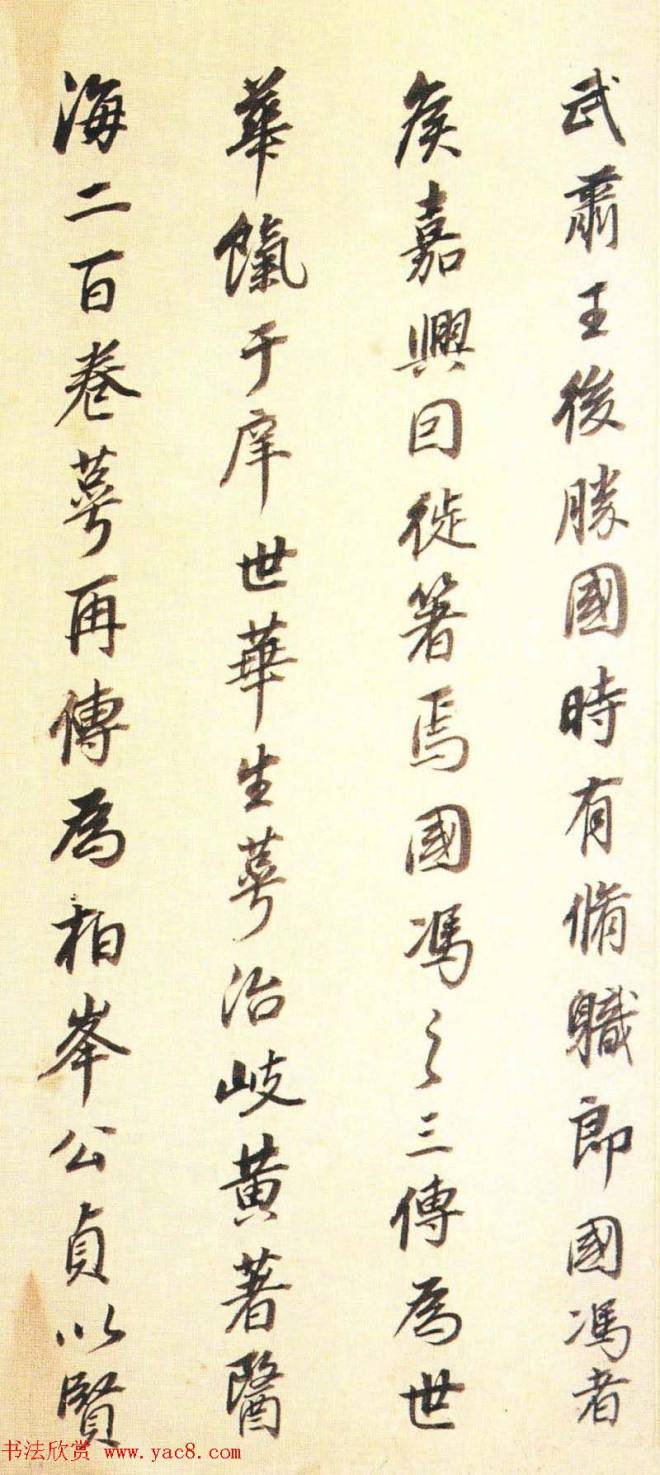 武肅王後勝國時有脩職郎國馮者
矦嘉興囙徙箸焉國馮之三傳為世
華餼于庠世華生萼治岐黃著醫
海二百卷萼再傳為柏峯公貞以賢
书法欣赏 www.yac8.com